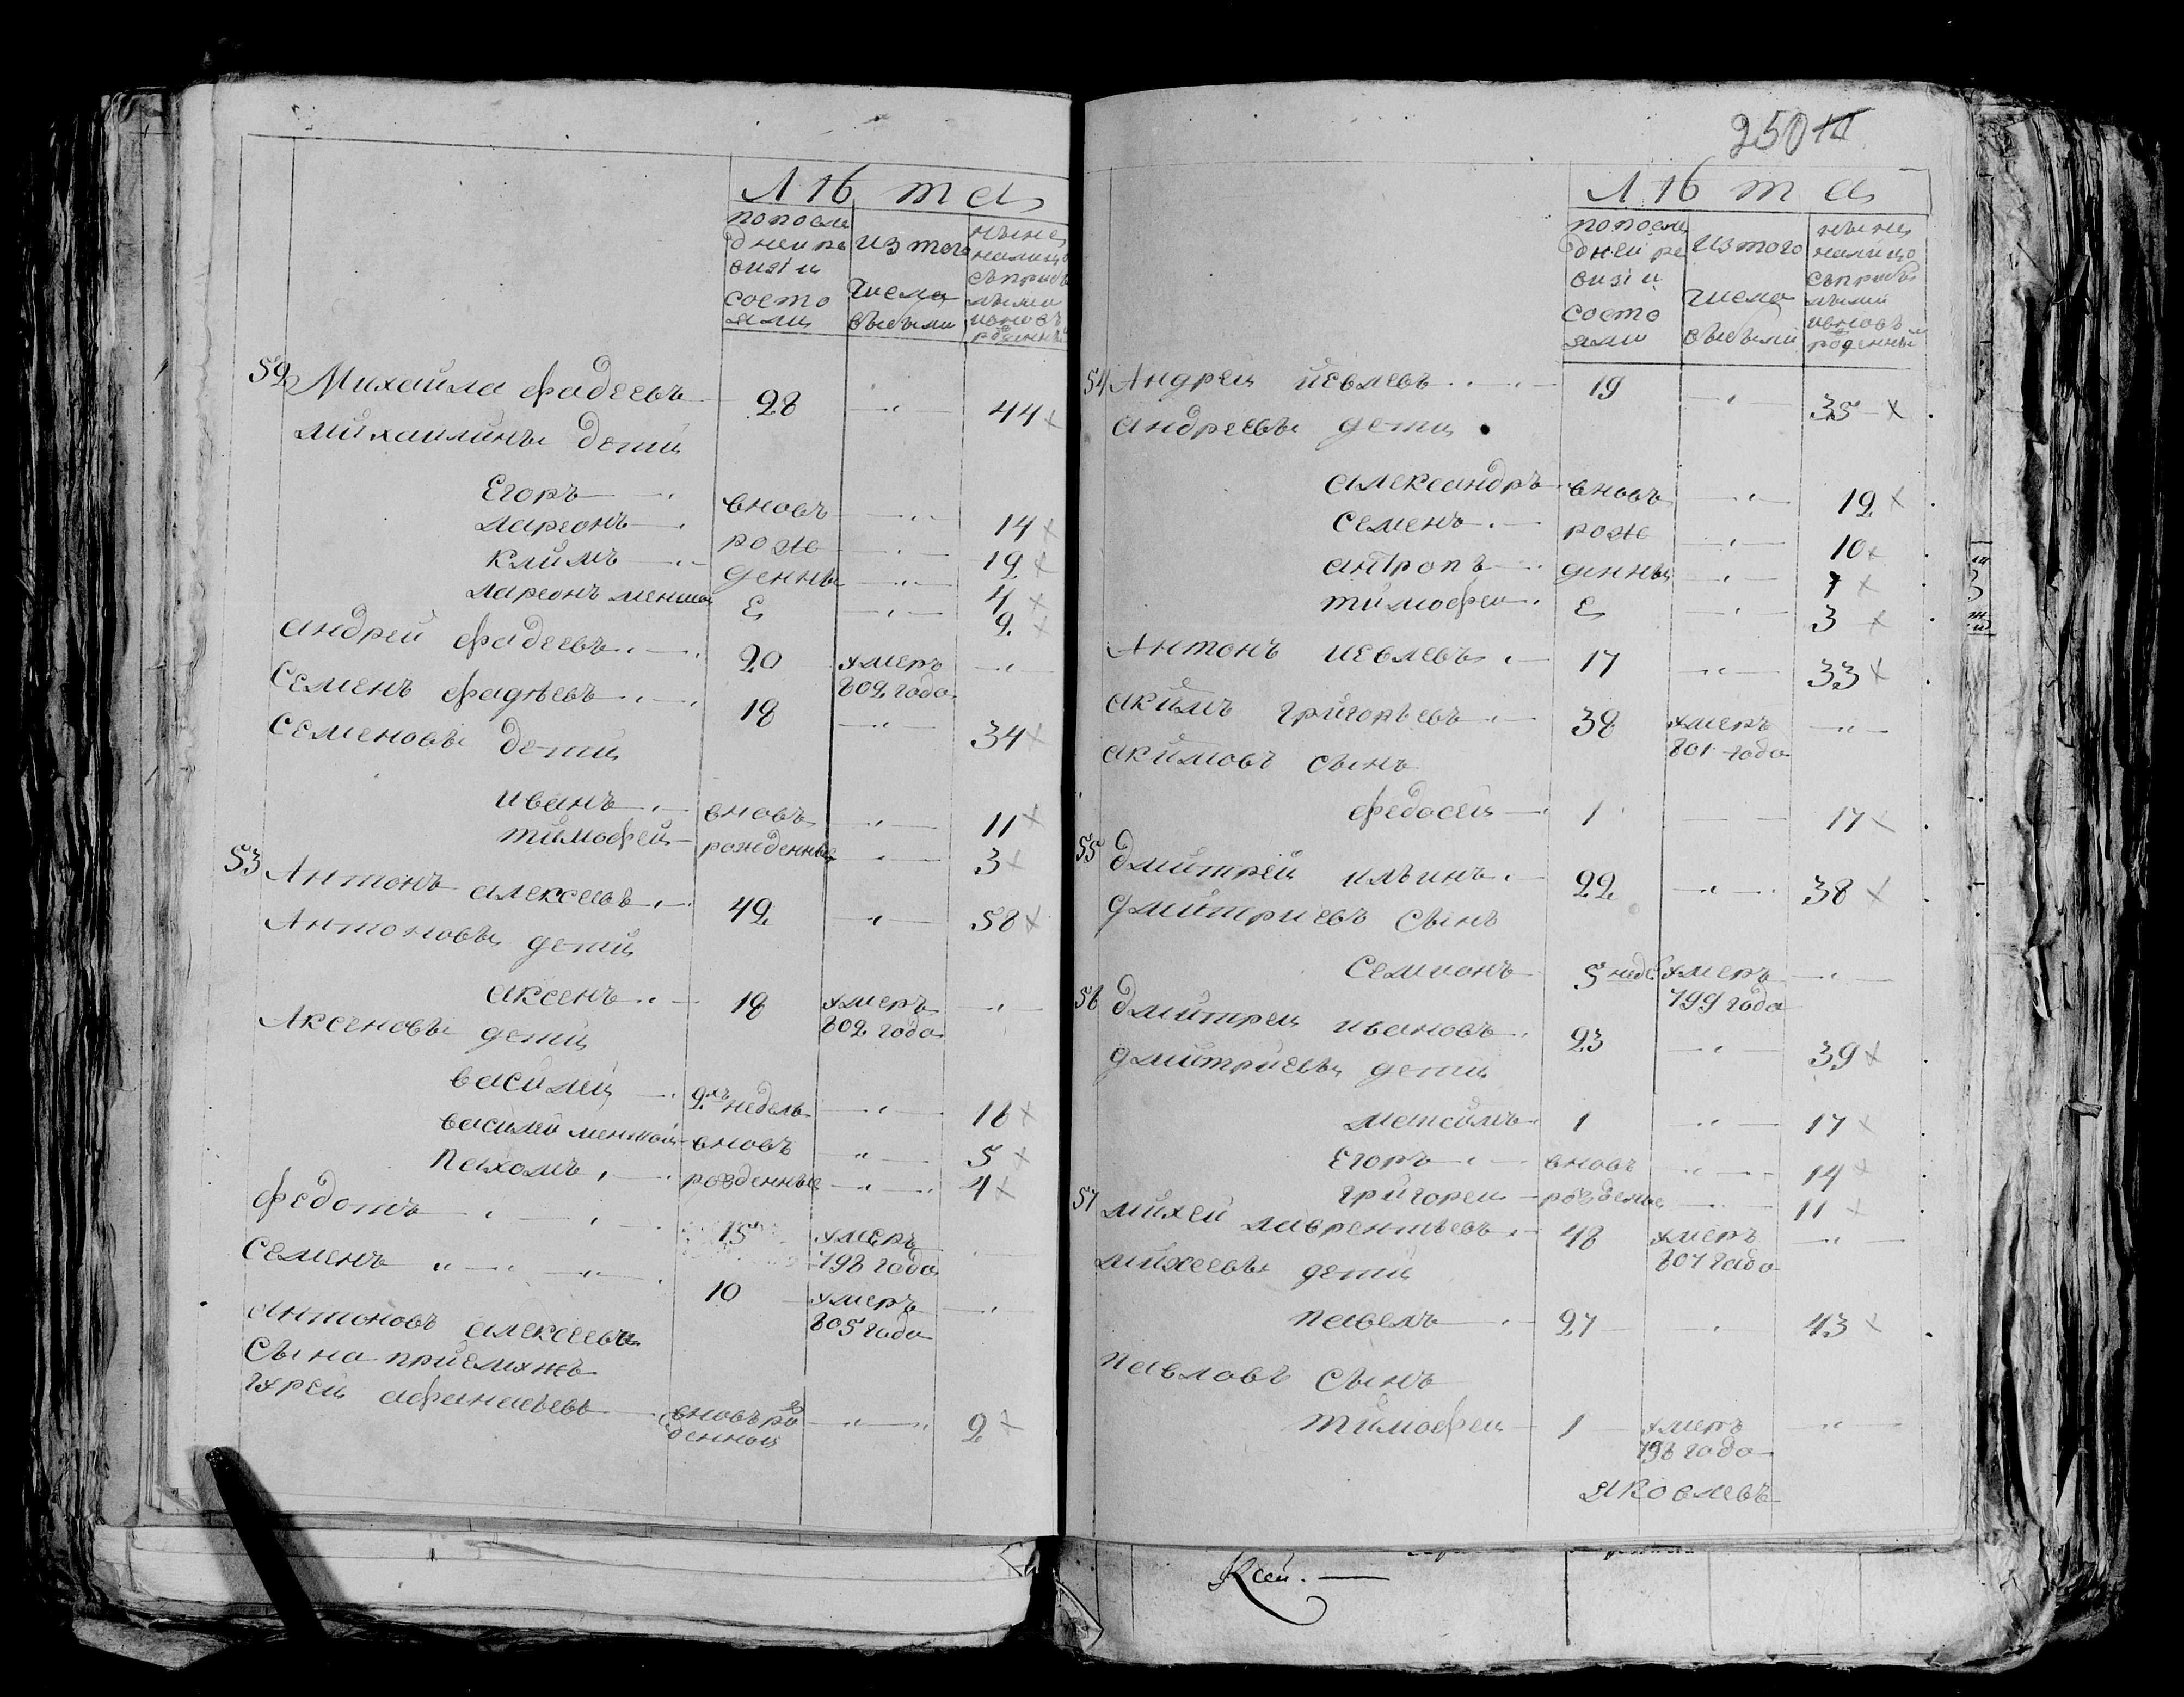 Лѣта
по после
дней ре
визіи
состо
яли
из того
числа
выбыли
нынѣ
налицо
съ прибы
лыми
и вновь
рожденны
52 Михайла Фадеевъ 28 — 44 х
Михайлины дети
Егоръ вновь — 14 х
Лареонъ рож — 12 х
Климъ денны — 4 х
Лареонъ меншой е — 2 х
Андрей Фадеевъ 20 умеръ
802 года
Семенъ Фадѣевъ 18 — 34 х
Семеновы дети
Иванъ вновь — 11 х
Тимофей рожденные — 3 х
53 Антонъ Алексеевъ 42 — 58 х
Антоновы дети
Аксенъ 18 умеръ
802 года
Аксеновы дети
Василей 2хъ недель — 16 х
Василей меншой вновь — 5 х
Пахомъ розденные — 4 х
Федотъ 15 умеръ
798 года
Семенъ 10 умеръ
805 года
Антоновъ Алексеева
сына приемышъ
Гурей Афанасьевъ вновь ро
денной — 2 х
250
Лѣта
по после
дней ре
визіи
состо
яли
из того
числа
выбыли
нынѣ
налицо
съ прибы
лыми
и вновь
роденный
54 Андрей Иевлевъ 19 — 35 х
Андреевы дети
Александръ вновь — 12 х
Семенъ рож — 10 х
Антропъ денны — 7 х
Тимофей е — 3 х
Антонъ Иевлевъ 17 — 33 х
Акимъ Григорьевъ 38 умеръ
801 года
Акимовъ сынъ
Федосей 1 — 17 х
55 Дмитрей Ильинъ 22 — 38 х
Дмитриевъ сынъ
Семионъ 5 неде умеръ
799 года
56 Дмитрей Ивановъ 23 — 39 х
Дмитриевы дети
Максимъ 1 — 17 х
Егоръ вновь — 14 х
Григорей розденые — 11 х
57 Михей Лаврентьевъ 48 умеръ
807 года
Михеевы дети
Павелъ 27 — 43 х
Павловъ сынъ
Тимофей 1 умеръ
798 года
Яковлевъ